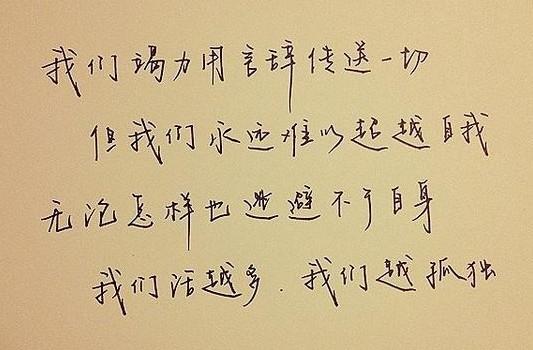 我们竭力用言辞传送一切
但我们永远难以超越自我
无论怎样也逃避不了自身
我们话越多.我们越孤独